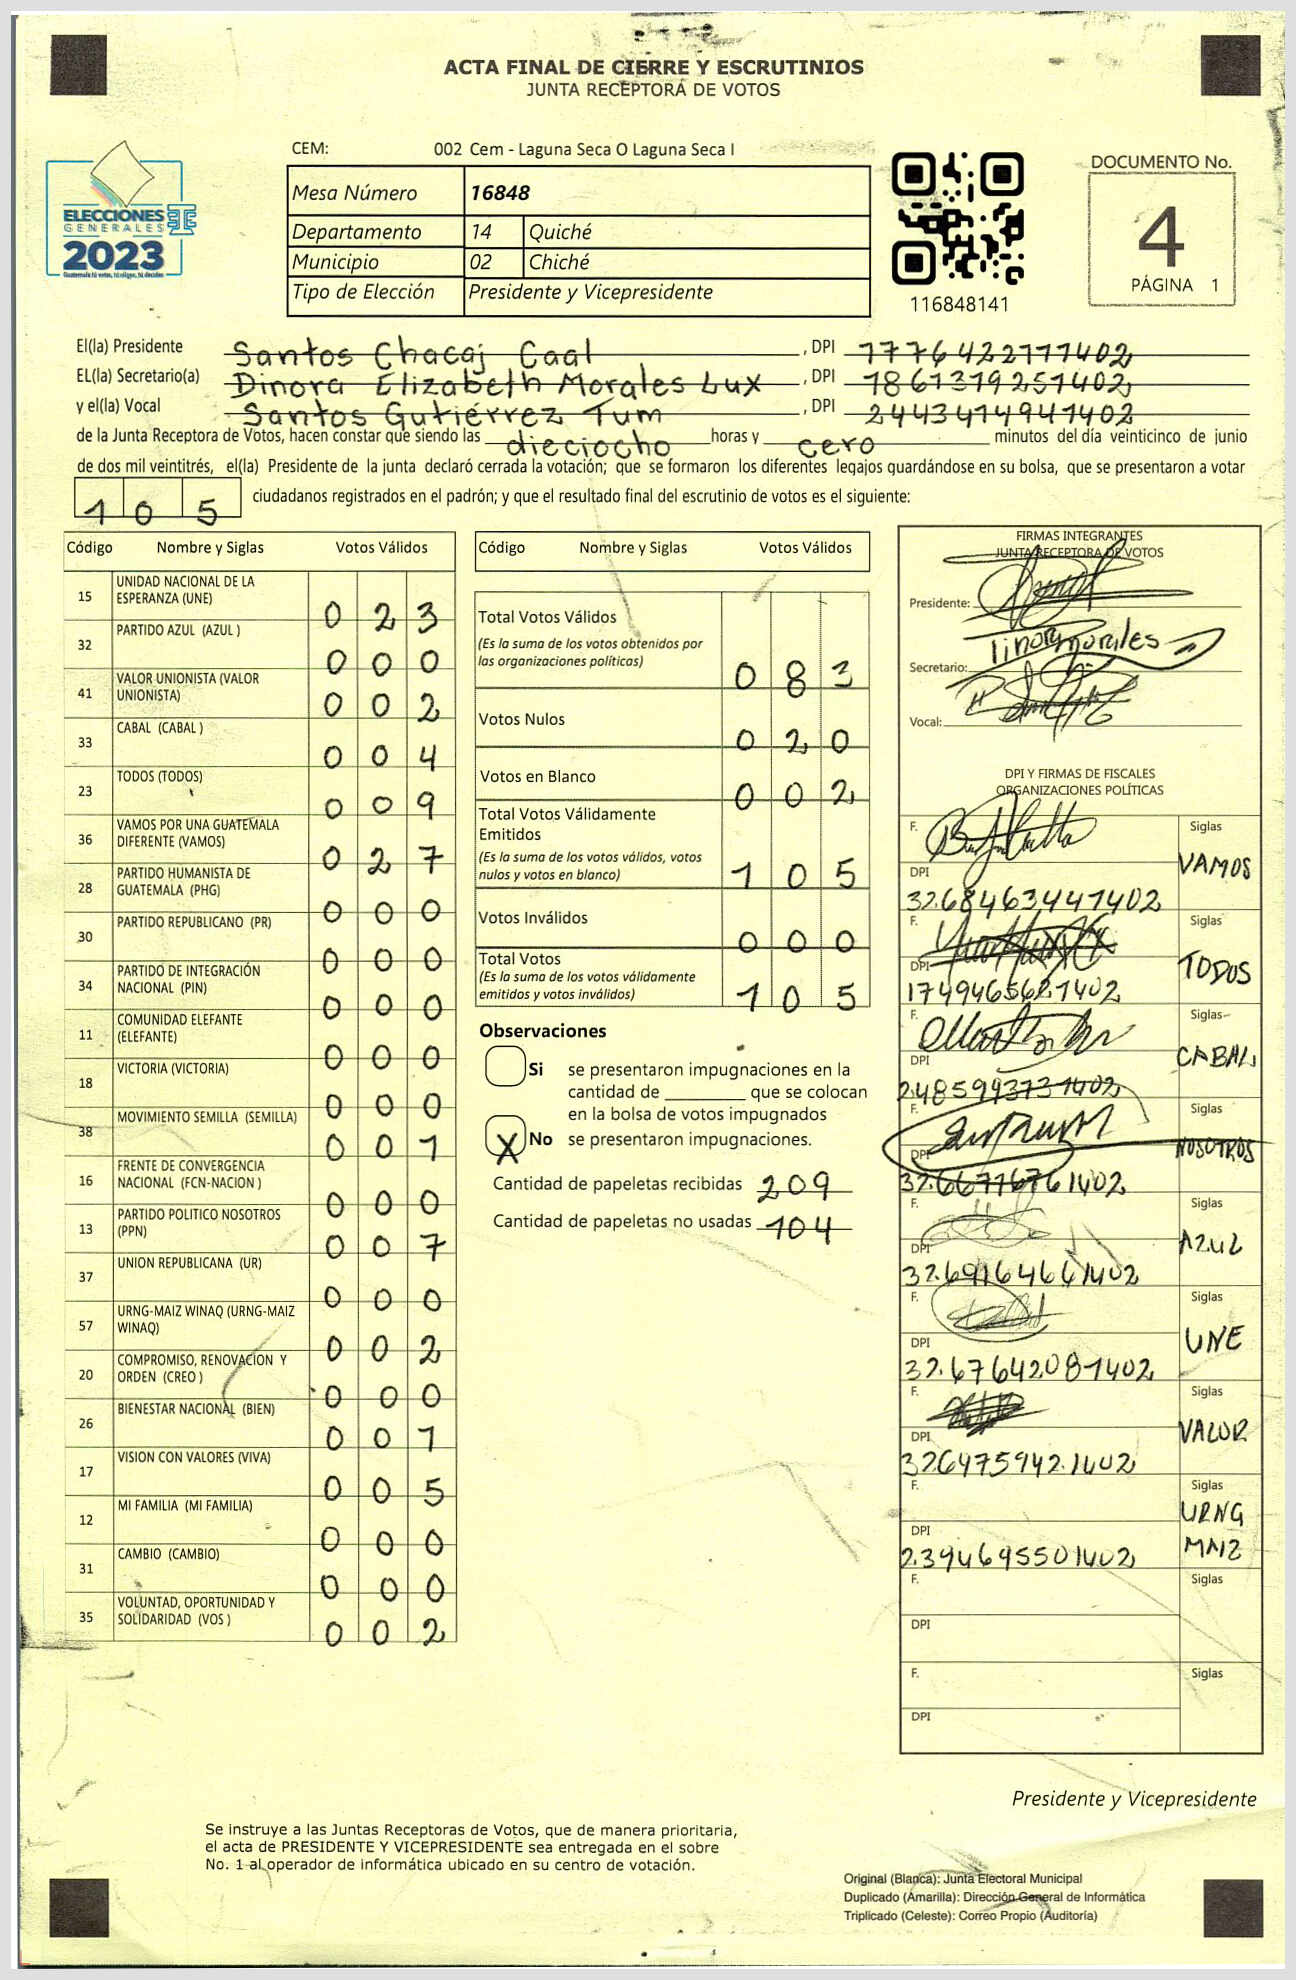 ACTA FINAL DE CIERRE Y ESCRUTINIOS
JUNTA RECEPTORA DE VOTOS
ELECCIONES
GENERALES
2023
Guatemala tú votas, tú eliges, tú decides
CEM: 002 Cem - Laguna Seca O Laguna Seca I
Mesa Número 16848
Departamento 14 Quiché
Municipio 02 Chiché
Tipo de Elección Presidente y Vicepresidente
116848141
DOCUMENTO No.
4
PÁGINA 1
El(la) Presidente Santos Chacaj Caal , DPI 1776422111402
EL(la) Secretario(a) Dinora Elizabeth Morales Lux , DPI 1861319251402
y el(la) Vocal Santos Gutiérrez Tum , DPI 2443414941402
de la Junta Receptora de Votos, hacen constar que siendo las dieciocho horas y cero minutos del día veinticinco de junio
de dos mil veintitrés, el(la) Presidente de la junta declaró cerrada la votación; que se formaron los diferentes legajos guardándose en su bolsa, que se presentaron a votar
105 ciudadanos registrados en el padrón; y que el resultado final del escrutinio de votos es el siguiente:
Código Nombre y Siglas Votos Válidos
15 UNIDAD NACIONAL DE LA ESPERANZA (UNE) 0 2 3
32 PARTIDO AZUL (AZUL ) 0 0 0
41 VALOR UNIONISTA (VALOR UNIONISTA) 0 0 2
33 CABAL (CABAL ) 0 0 4
23 TODOS (TODOS) 0 0 9
36 VAMOS POR UNA GUATEMALA DIFERENTE (VAMOS) 0 2 7
28 PARTIDO HUMANISTA DE GUATEMALA (PHG) 0 0 0
30 PARTIDO REPUBLICANO (PR) 0 0 0
34 PARTIDO DE INTEGRACIÓN NACIONAL (PIN) 0 0 0
11 COMUNIDAD ELEFANTE (ELEFANTE) 0 0 0
18 VICTORIA (VICTORIA) 0 0 0
38 MOVIMIENTO SEMILLA (SEMILLA) 0 0 1
16 FRENTE DE CONVERGENCIA NACIONAL (FCN-NACION ) 0 0 0
13 PARTIDO POLITICO NOSOTROS (PPN) 0 0 7
37 UNION REPUBLICANA (UR) 0 0 0
57 URNG-MAIZ WINAQ (URNG-MAIZ WINAQ) 0 0 2
20 COMPROMISO, RENOVACION Y ORDEN (CREO ) 0 0 0
26 BIENESTAR NACIONAL (BIEN) 0 0 1
17 VISION CON VALORES (VIVA) 0 0 5
12 MI FAMILIA (MI FAMILIA) 0 0 0
31 CAMBIO (CAMBIO) 0 0 0
35 VOLUNTAD, OPORTUNIDAD Y SOLIDARIDAD (VOS ) 0 0 2
Código Nombre y Siglas Votos Válidos
Total Votos Válidos
(Es la suma de los votos obtenidos por
las organizaciones políticas) 0 8 3
Votos Nulos 0 2 0
Votos en Blanco 0 0 2
Total Votos Válidamente
Emitidos
(Es la suma de los votos válidos, votos
nulos y votos en blanco) 1 0 5
Votos Inválidos 0 0 0
Total Votos
(Es la suma de los votos válidamente
emitidos y votos inválidos) 1 0 5
Observaciones
Si se presentaron impugnaciones en la
cantidad de ________ que se colocan
en la bolsa de votos impugnados
X No se presentaron impugnaciones.
Cantidad de papeletas recibidas 209
Cantidad de papeletas no usadas 104
FIRMAS INTEGRANTES
JUNTA RECEPTORA DE VOTOS
Presidente:
Secretario:
Vocal:
DPI Y FIRMAS DE FISCALES
ORGANIZACIONES POLÍTICAS
F. Siglas
VAMOS
DPI
3268463441402
F. Siglas
TODOS
DPI
1749465621402
F. Siglas
CABAL
DPI
2485993731402
F. Siglas
NOSOTROS
DPI
3266716761402
F. Siglas
AZUL
DPI
3269164661402
F. Siglas
UNE
DPI
3267642081402
F. Siglas
VALOR
DPI
3264759421402
F. Siglas
URNG
MAIZ
DPI
2394695501402
F. Siglas
DPI
F. Siglas
DPI
Presidente y Vicepresidente
Se instruye a las Juntas Receptoras de Votos, que de manera prioritaria,
el acta de PRESIDENTE Y VICEPRESIDENTE sea entregada en el sobre
No. 1 al operador de informática ubicado en su centro de votación.
Original (Blanca): Junta Electoral Municipal
Duplicado (Amarilla): Dirección General de Informática
Triplicado (Celeste): Correo Propio (Auditoría)